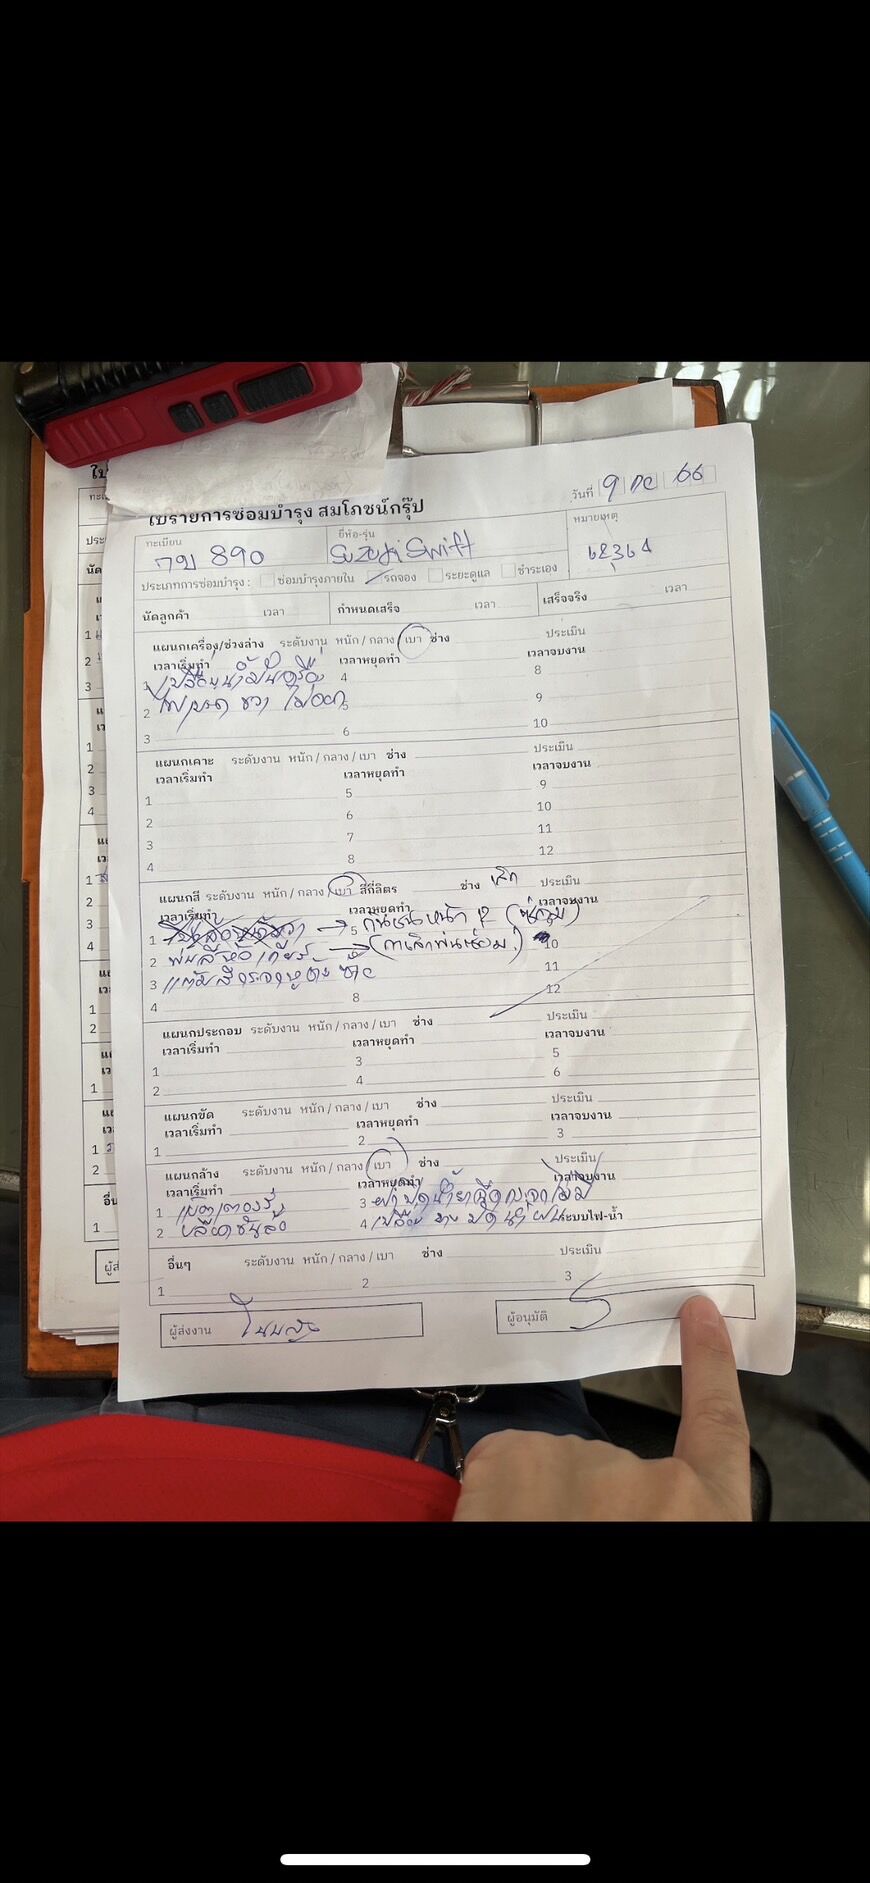 วันที่ 9 กย 66
ใบรายการซ่อมบำรุง สมโภชน์กรุ๊ป
ทะเบียน ยี่ห้อ-รุ่น หมายเหตุ
กบ 890 Suzuki Swift
ประเภทการซ่อมบำรุง : ซ่อมบำรุงภายใน รถจอง ระยะดูแล ชำระเอง
นัดลูกค้า เวลา กำหนดเสร็จ เวลา เสร็จจริง เวลา
แผนกเครื่อง/ช่วงล่าง ระดับงาน หนัก / กลาง / เบา ช่าง ประเมิน
เวลาเริ่มทำ เวลาหยุดทำ เวลาจบงาน
1 เปลี่ยนน้ำมันเครื่อง 4 8
2 ไฟเบรค ขวา ไม่ออก 5 9
3 6 10
แผนกเคาะ ระดับงาน หนัก / กลาง / เบา ช่าง ประเมิน
เวลาเริ่มทำ เวลาหยุดทำ เวลาจบงาน
1 5 9
2 6 10
3 7 11
4 8 12
แผนกสี ระดับงาน หนัก / กลาง / เบา สีกี่ลิตร ช่าง เล็ก ประเมิน
เวลาเริ่มทำ เวลาหยุดทำ เวลาจบงาน
1 5 กันชนหน้า R
2 พ่นสีหัวเกียร์ 10
3 แต้มสีกระจกหูช้าง ซ้าย 11
4 8 12
แผนกประกอบ ระดับงาน หนัก / กลาง / เบา ช่าง ประเมิน
เวลาเริ่มทำ เวลาหยุดทำ เวลาจบงาน
1 3 5
2 4 6
แผนกขัด ระดับงาน หนัก / กลาง / เบา ช่าง ประเมิน
เวลาเริ่มทำ เวลาหยุดทำ เวลาจบงาน
1 2 3
แผนกล้าง ระดับงาน หนัก / กลาง / เบา ช่าง ประเมิน
เวลาเริ่มทำ เวลาหยุดทำ เวลาจบงาน
1 3 ฝาปิดน้ำยาฉีดกระจกไม่มี
2 4 เปลี่ยน ยาง ปัดน้ำฝน ระบบไฟ-น้ำ
อื่นๆ ระดับงาน หนัก / กลาง / เบา ช่าง ประเมิน
1 2 3
ผู้ส่งงาน ผู้อนุมัติ